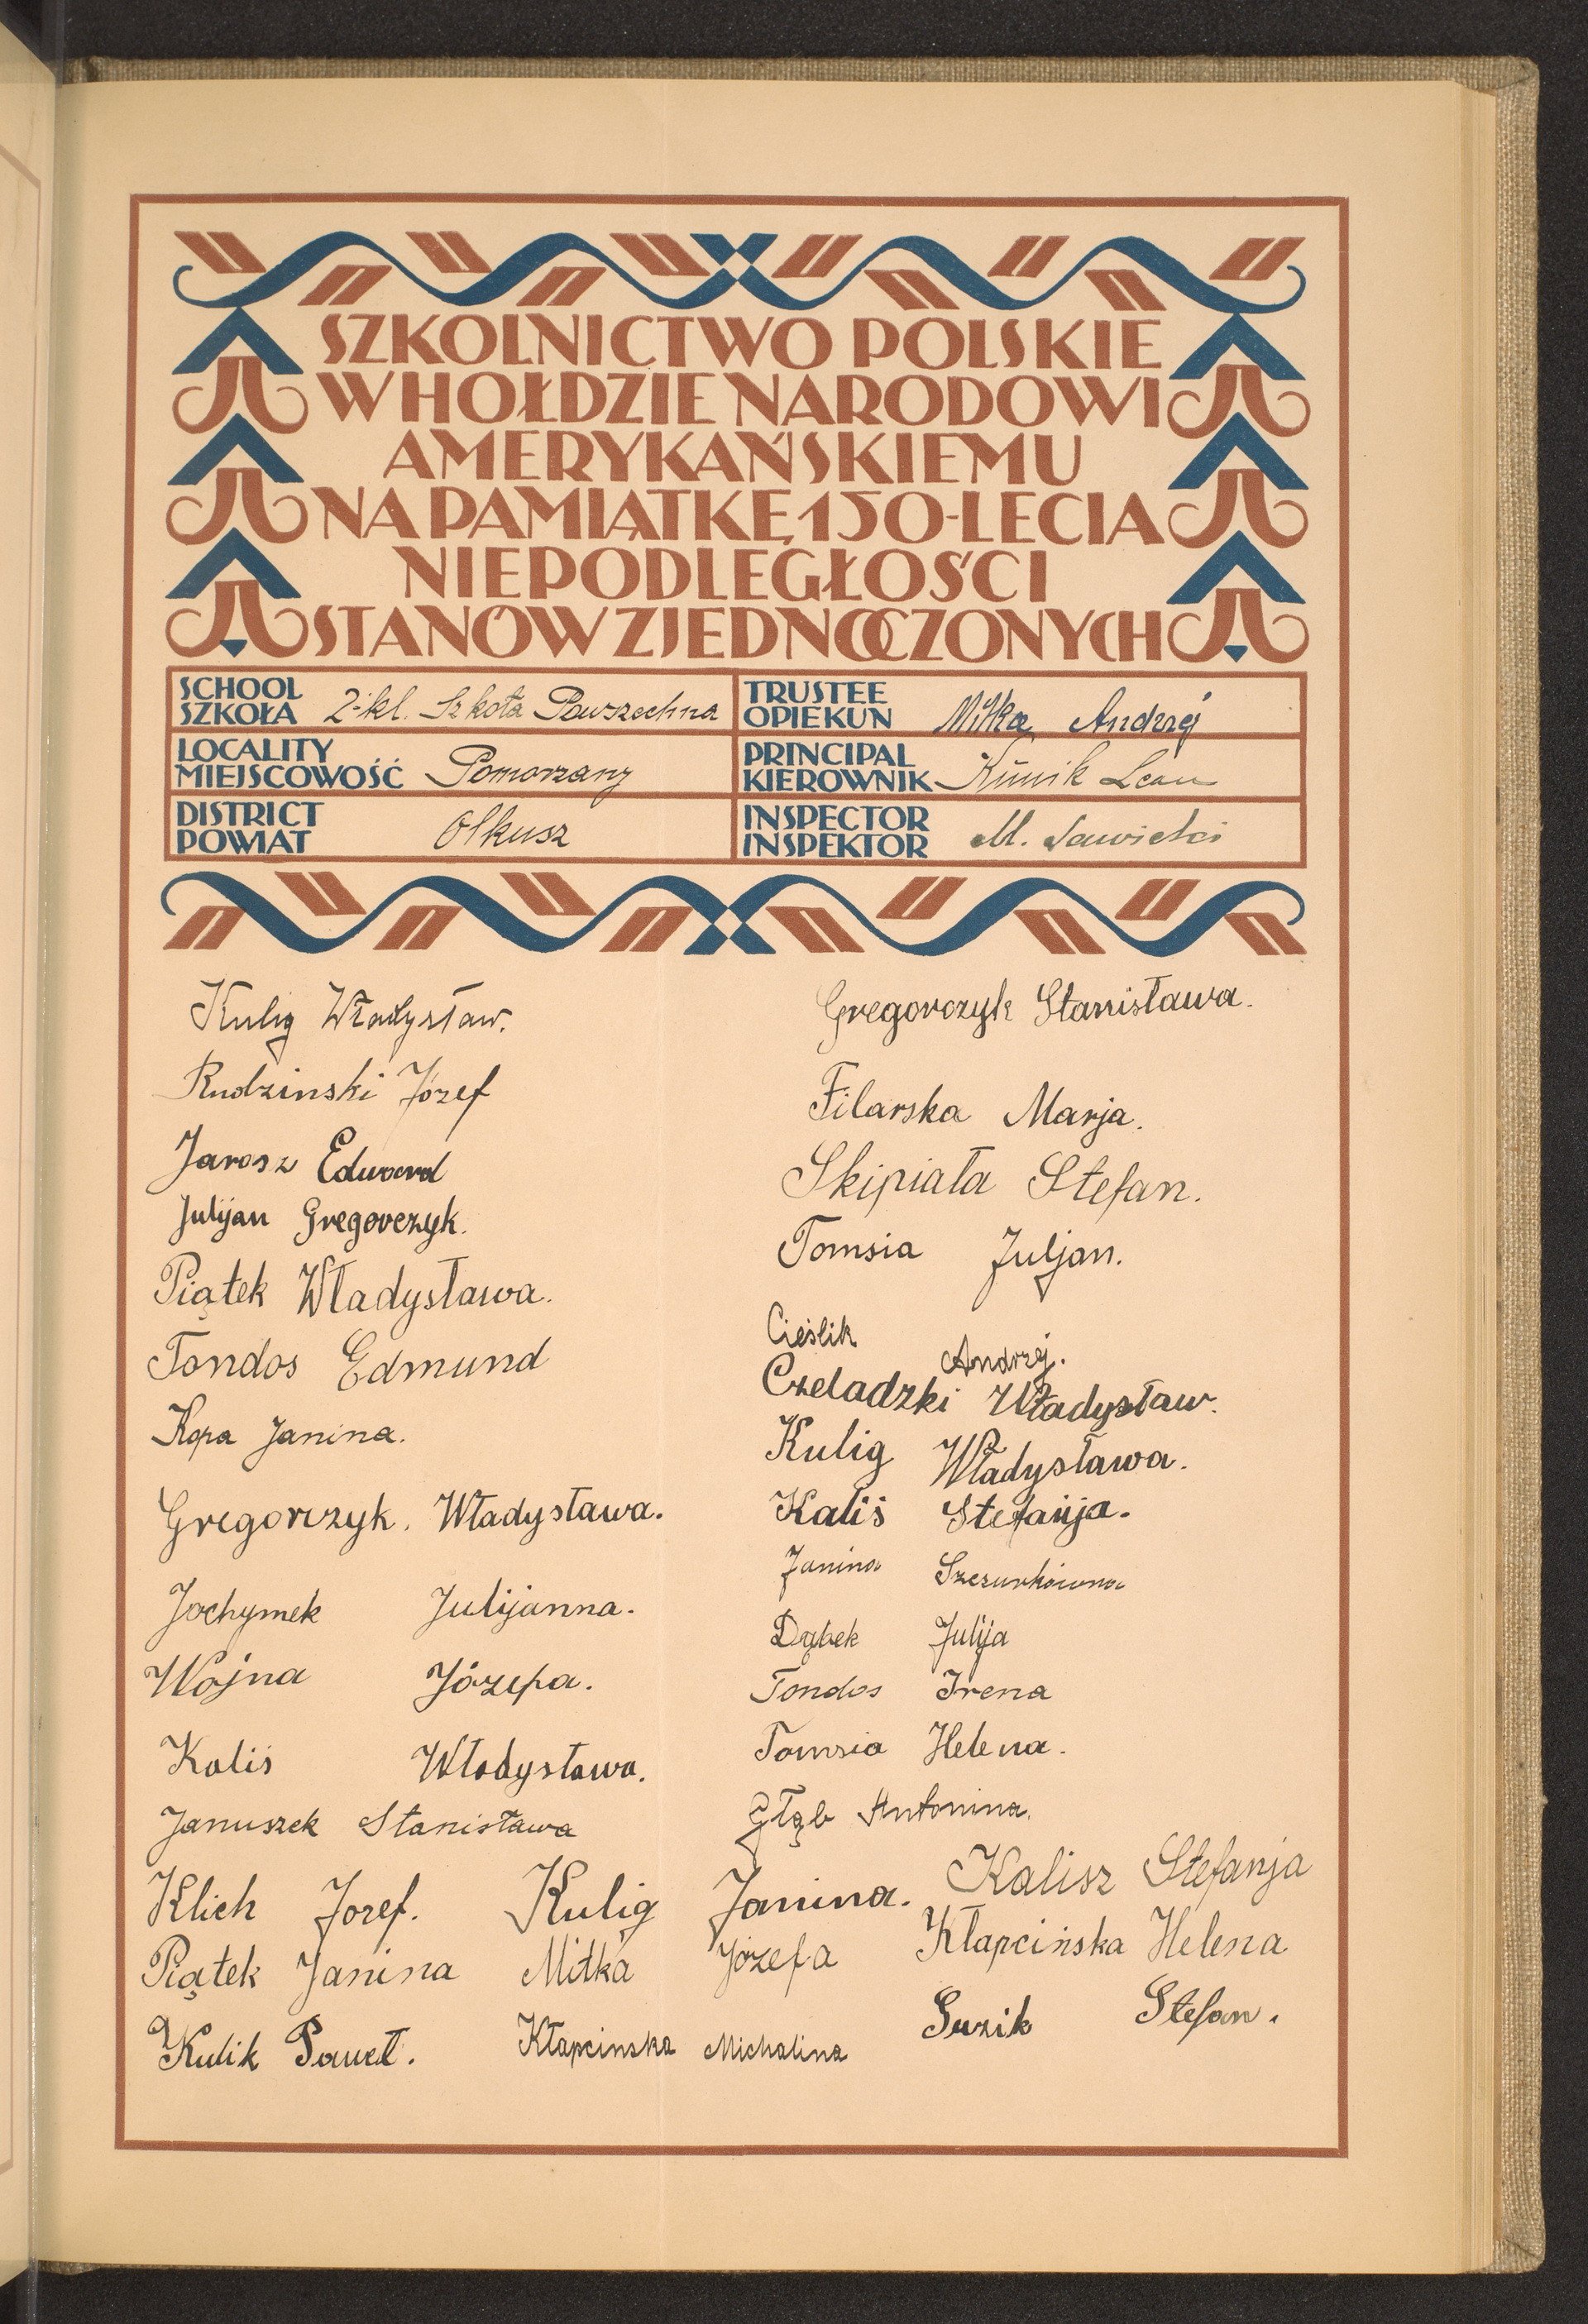 SZKOLNICTWO POLSKIE
W HOŁDZIE NARODOWI
AMERYKAŃSKIEMU
NA PAMIĄTKĘ 150-LECIA
NIEPODLEGŁOŚCI
STANÓW ZJEDNOCZONYCH
SCHOOL
SZKOŁA 2-kl. Szkoła Powszechna
TRUSTEE
OPIEKUN Mitka Andrzej
LOCALITY
MIEJSCOWOŚĆ Pomorzany
PRINCIPAL
KIEROWNIK Kunik Leon
DISTRICT
POWIAT Olkusz
INSPECTOR
INSPEKTOR M. Sawicki
Kulig Władysław.
Rudzinski Józef
Jarosz Edward
Julijan Gregorczyk.
Piątek Władysława.
Tondos Edmund
Kopa Janina.
Gregorczyk. Władysława.
Jochymek Julijanna.
Wojna Józefa.
Kaliś Władysława.
Januszek Stanisława
Klich Jozef.
Piątek Janina
Kulik Paweł.
Kulig Janina.
Mitka Józefa
Kłapcinska Michalina
Gregorczyk Stanisława.
Filarska Marja.
Skipiała Stefan.
Tomsia Juljan.
Cieślik Andrzej.
Czeladzki Władysław.
Kulig Władysława.
Kaliś Stefanja.
Janina Szczurkówna
Dąbek Julija
Tondos Irena
Tomsia Helena.
Głąb Antonina.
Kalisz Stefanja
Kłapcińska Helena
Guzik Stefan.